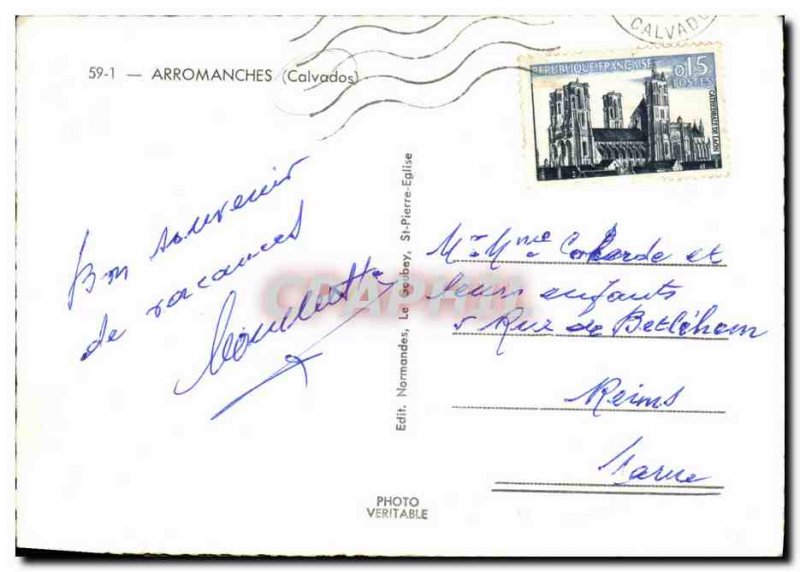 59-1 — ARROMANCHES (Calvados)
CALVADOS
REPUBLIQUE FRANÇAISE
0,15
POSTES
CATHEDRALE DE LAON
Bon souvenir
de vacances
Mr Mme et
leurs enfants
5 Rue de Betléham
Reims
Marne
Edit. Normandes, Le Goubey, St-Pierre-Eglise
PHOTO
VERITABLE
CPAPHIL